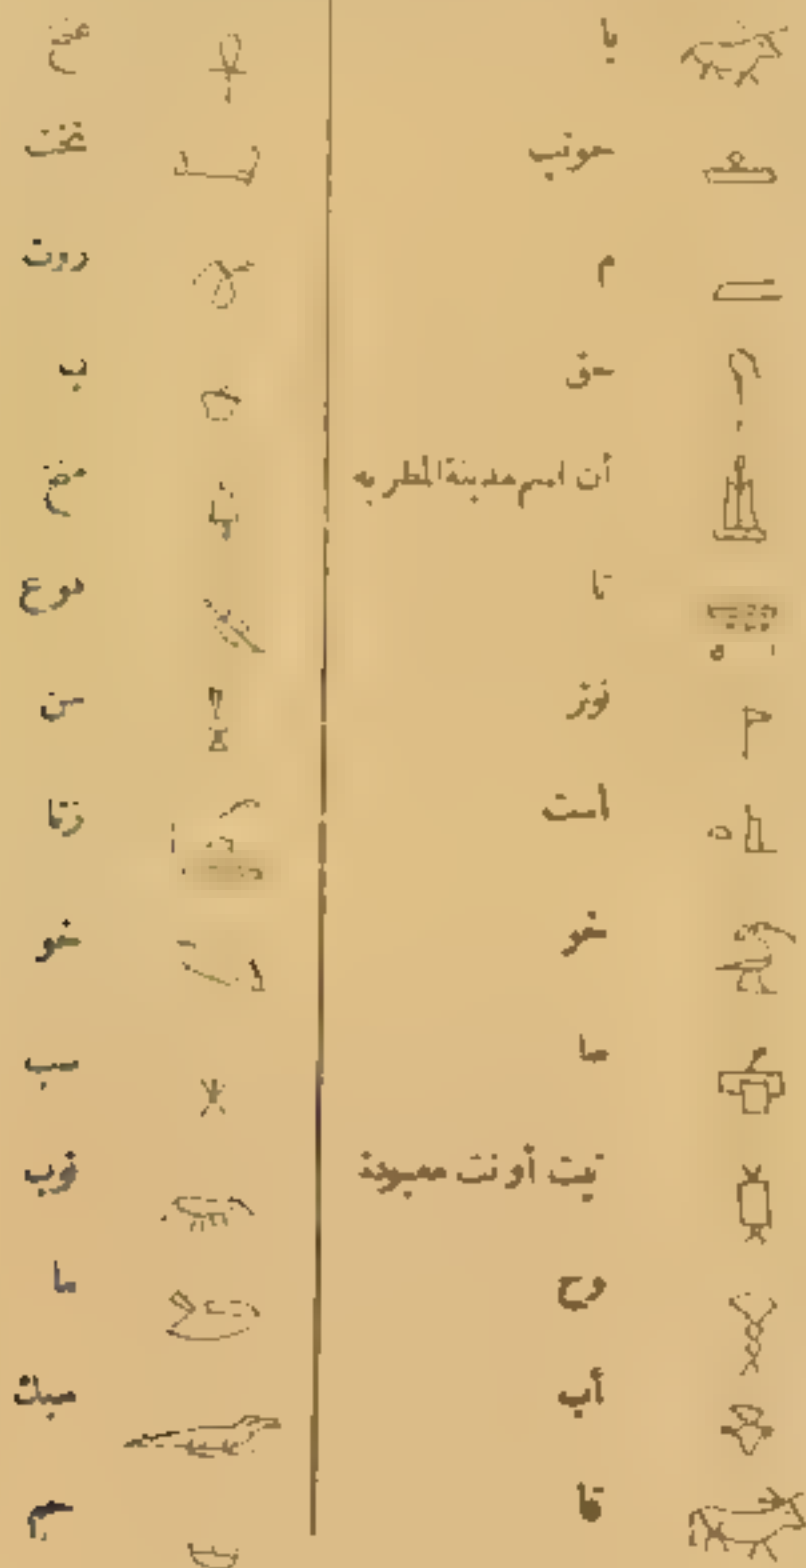 با
حوتب
م
حق
أن اسم مدينة المطريه
تا
نوتر
است
خو
نيت أو نت معبودة
وح
أب
قا
عنخ
روت
ب
رتا
خو
سب
نوب
ما
سبك